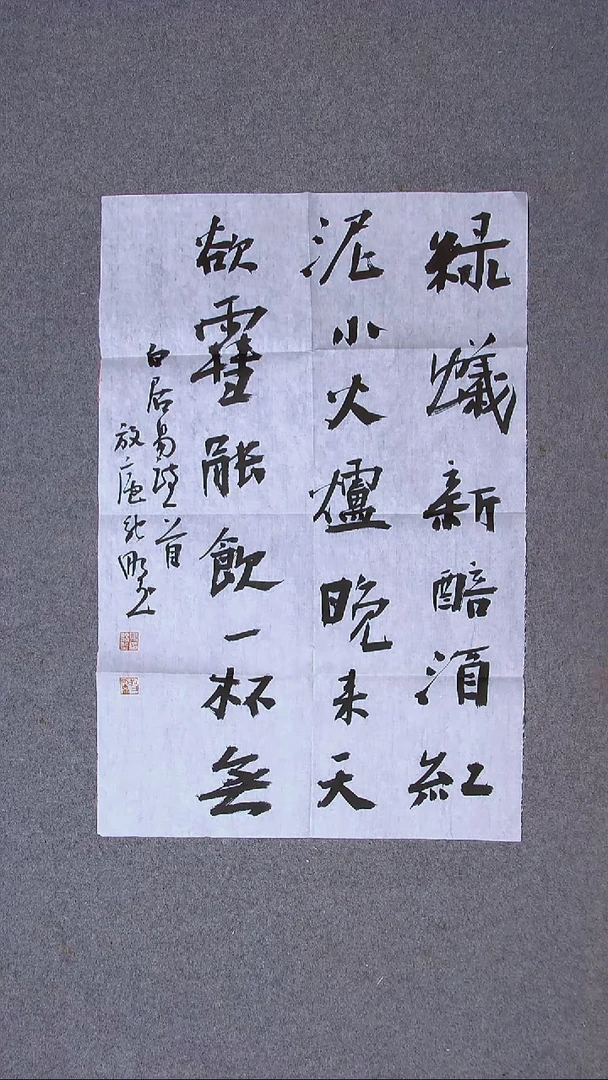 綠蟻新醅酒紅
泥小火爐晚来天
欲雪能飲一杯無
白居易詩一首
放庵